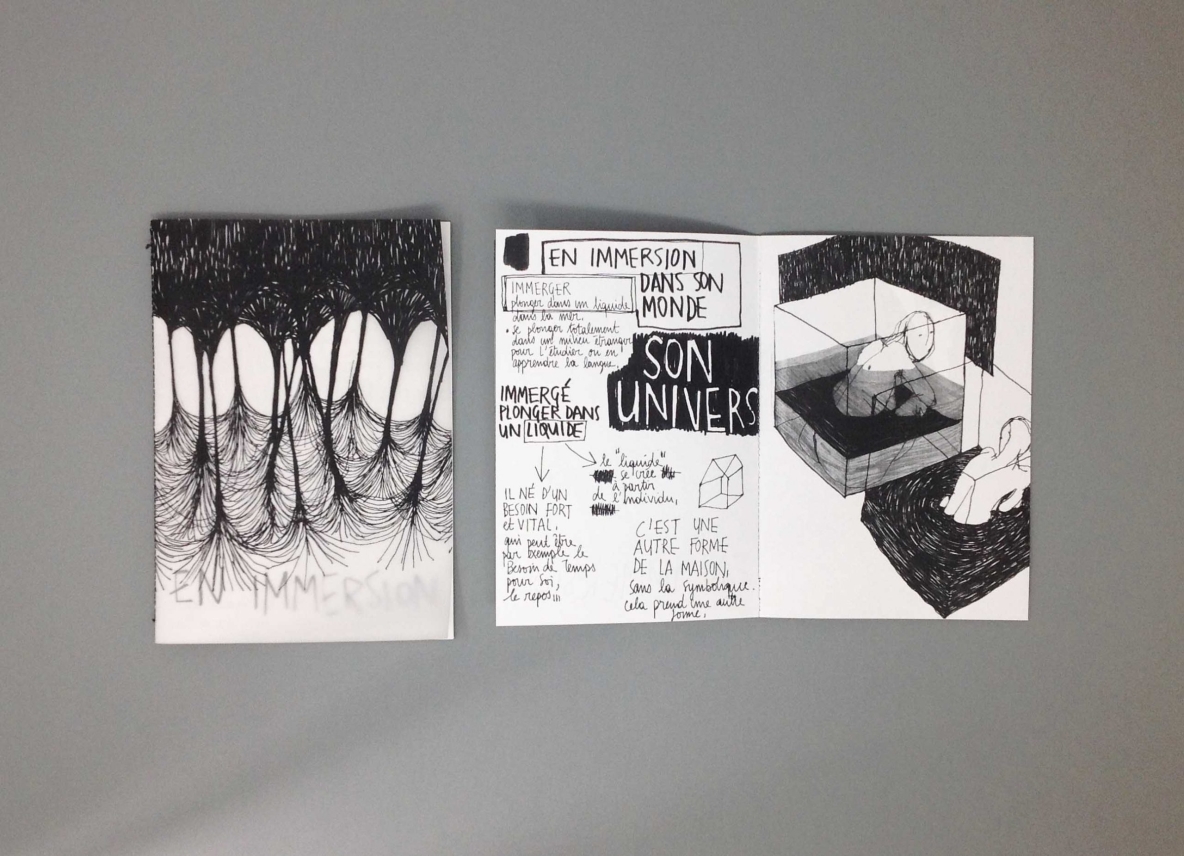 EN IMMERSION
EN IMMERSION
DANS SON
MONDE
IMMERGER
plonger dans un liquide
dans la mer.
• se plonger totalement
dans un milieu étranger
pour l'étudier ou en
apprendre la langue.
SON
UNIVERS
IMMERGÉ
PLONGER DANS
UN LIQUIDE
le "liquide"
se crée
à partir
de l'individu,
IL NÉ D'UN
BESOIN FORT
et VITAL,
qui peut être
par exemple le
Besoin de Temps
pour soi,
le repos...
C'EST UNE
AUTRE FORME
DE LA MAISON,
sans la symbolique.
cela prend une autre
forme.